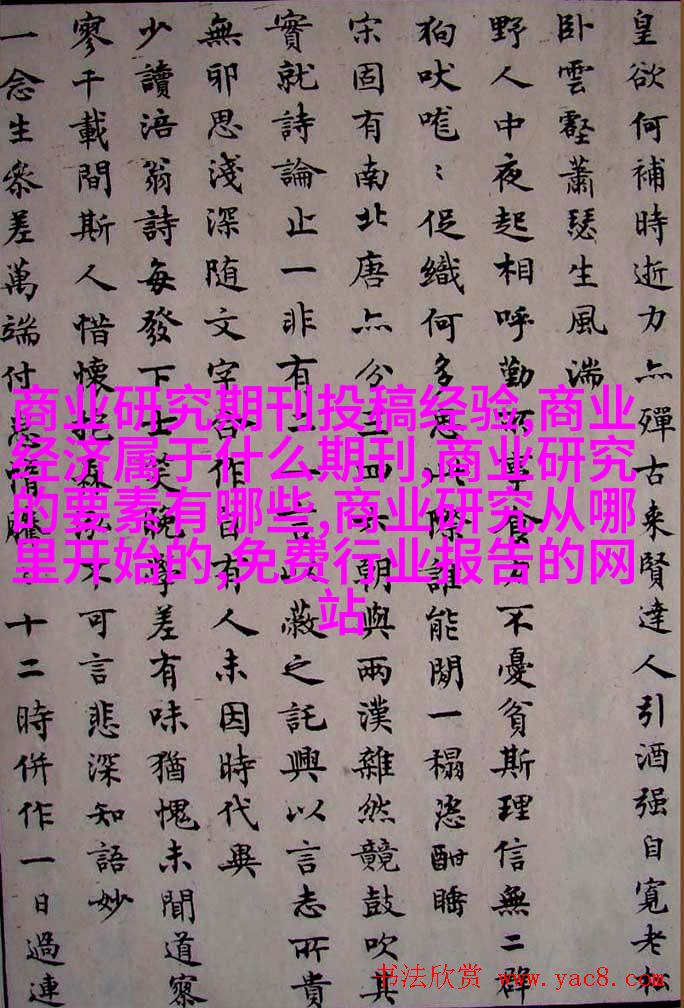 皇欲何補時逝力亦殫古來賢達人引酒强自寬老
卧雲壑蕭瑟生風湍
野人中夜起相呼勤事食力不憂貧斯理信無二群
狗吠嘊〻促織何多思此際誰能閑一榻恣酣睡
宋固有南北唐亦分至四六朝與兩漢雜然競鼓吹其
實就詩論止一非有二一言以蔽之託興以言志所貴
無邪思淺深随文字合作皆有人未因時代異
少讀涪翁詩每發下士笑晚學差有味猶愧未聞道寥
寥千載間斯人惜懷抱不可言悲深知語妙
一念生參差萬端付十二時併作一日過連
商业研究期刊投稿经验,商业
经济属于什么期刊,商业研究
的要素有哪些,商业研究从哪
里开始的,免费行业报告的网
站
书法欣赏 www.yac8.com